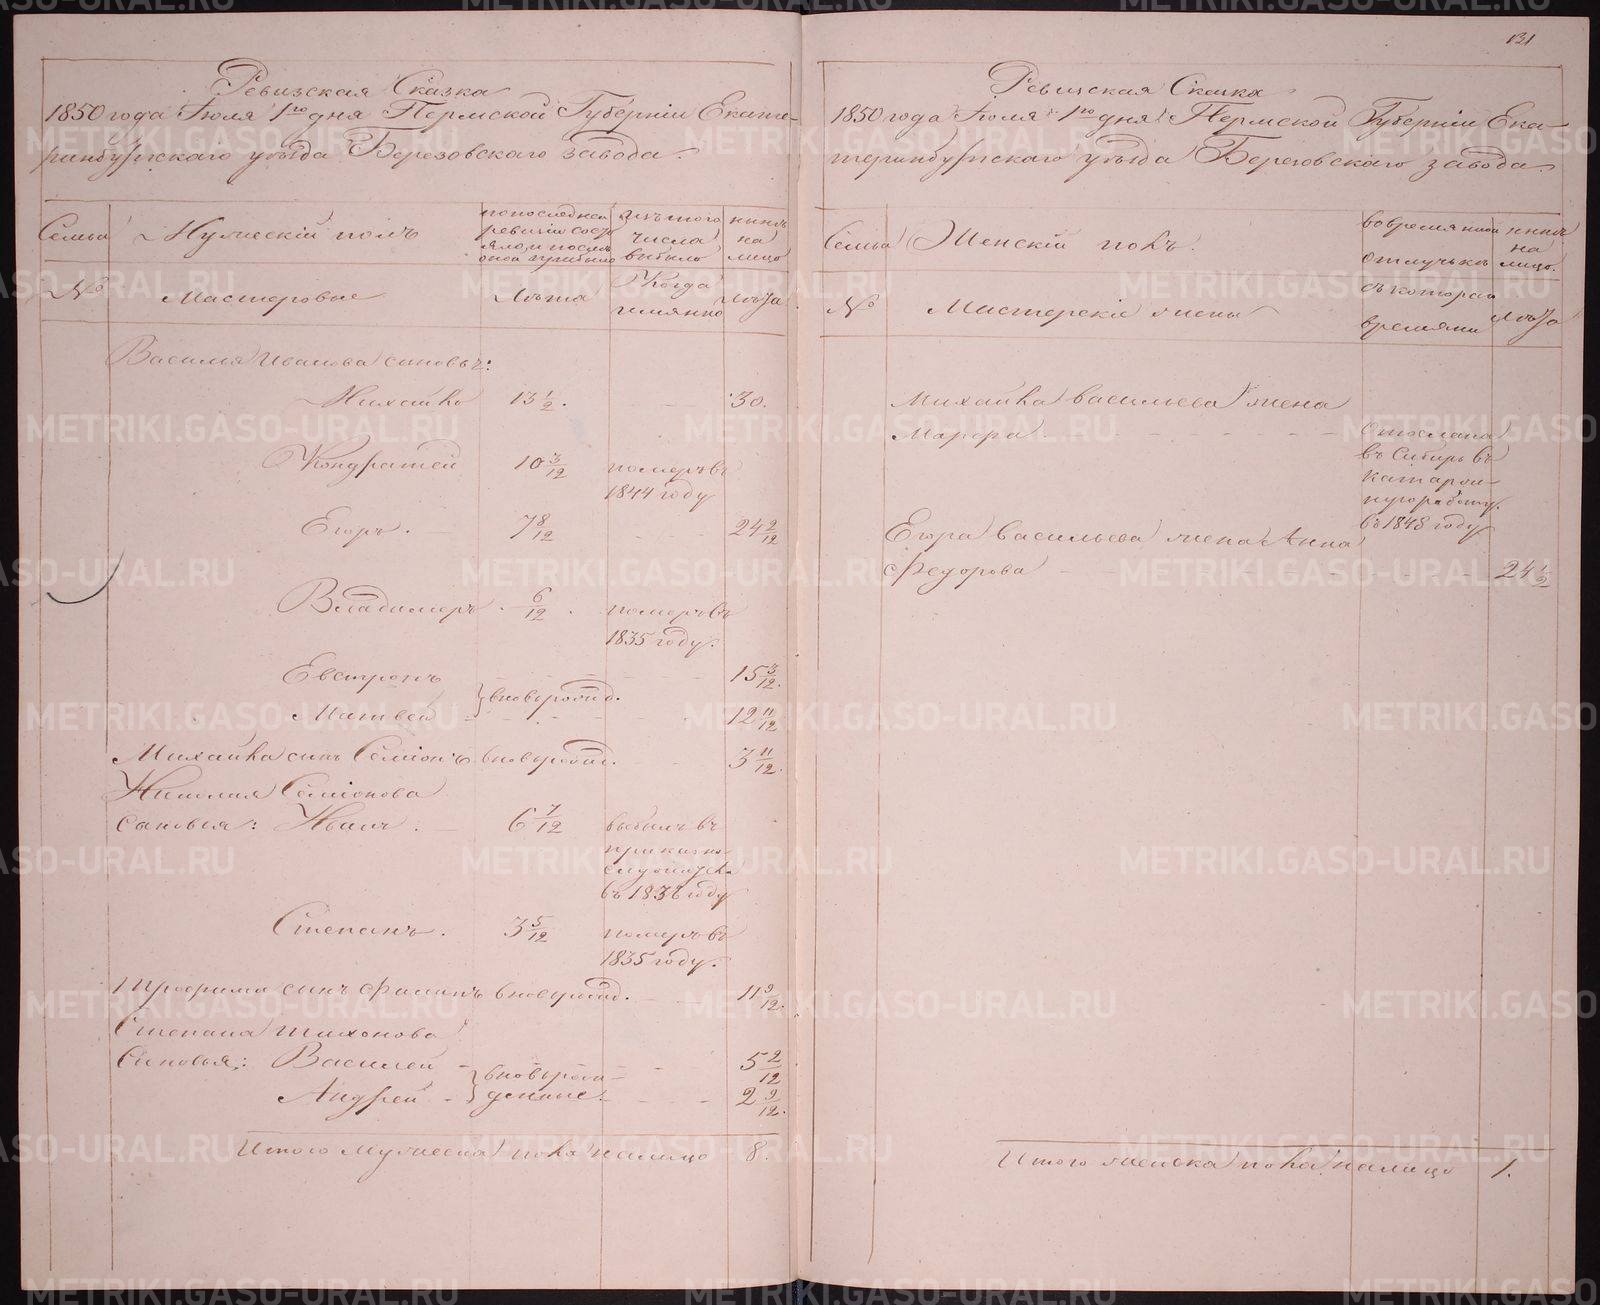 131
Ревизская Сказка
1850 года Июля 1го дня Пермской Губерніи Екате-
ринбургскаго уѣзда Березовскаго завода.
Семьи
Мужескій полъ
по последней
ревизіи состо
яло, и послѣ
оной прибыло
изъ того
числа
выбыло
нынѣ
на
лицо
№
Мастеровые
Лѣта
Когда
именно
Лѣта
Василья Иванова сыновья:
Михайло 13 1/2. 30.
Кондратей 10 3/12 померъ въ
1844 году
Егоръ. 7 8/12 24 2/12
Владимеръ 6/12. померъ въ
1835 году.
Евстропъ 15 3/12.
вновьрожд.
Матвей 12 11/12
Михайла сынъ Семіонъ вновьрожд. 3 11/12.
Семіонова
сыновья: Иванъ. 6 7/12 выбылъ въ
въ 1838 году
Степанъ. 3 5/12 померъ въ
1835 году.
Трофима сынъ Филипъ вновьрожд. 11 9/12.
Степана Тихонова
Сыновья: Василей 5 2/12
вновьрож-
денные.
Андрей 2 9/12.
Итого мужеска пола на лицо 8.
Ревизская Сказка
1850 года Июля 1го дня Пермской Губерніи Ека-
теринбургскаго уѣзда Березовскаго завода.
Семьи
Женскій полъ.
во временной
отлучкѣ
нынѣ
на
лицо.
№
Мастерскія жены
съ котораго
времяни
Лѣта
Михайла Васильева жена
Марфа отослана
въ Сибирь въ
каторж-
ную работу.
въ 1848 году
Егора Васильева жена Анна
Федорова 24 1/2
Итого женска пола на лицо 1.
METRIKI.GASO-URAL.RU